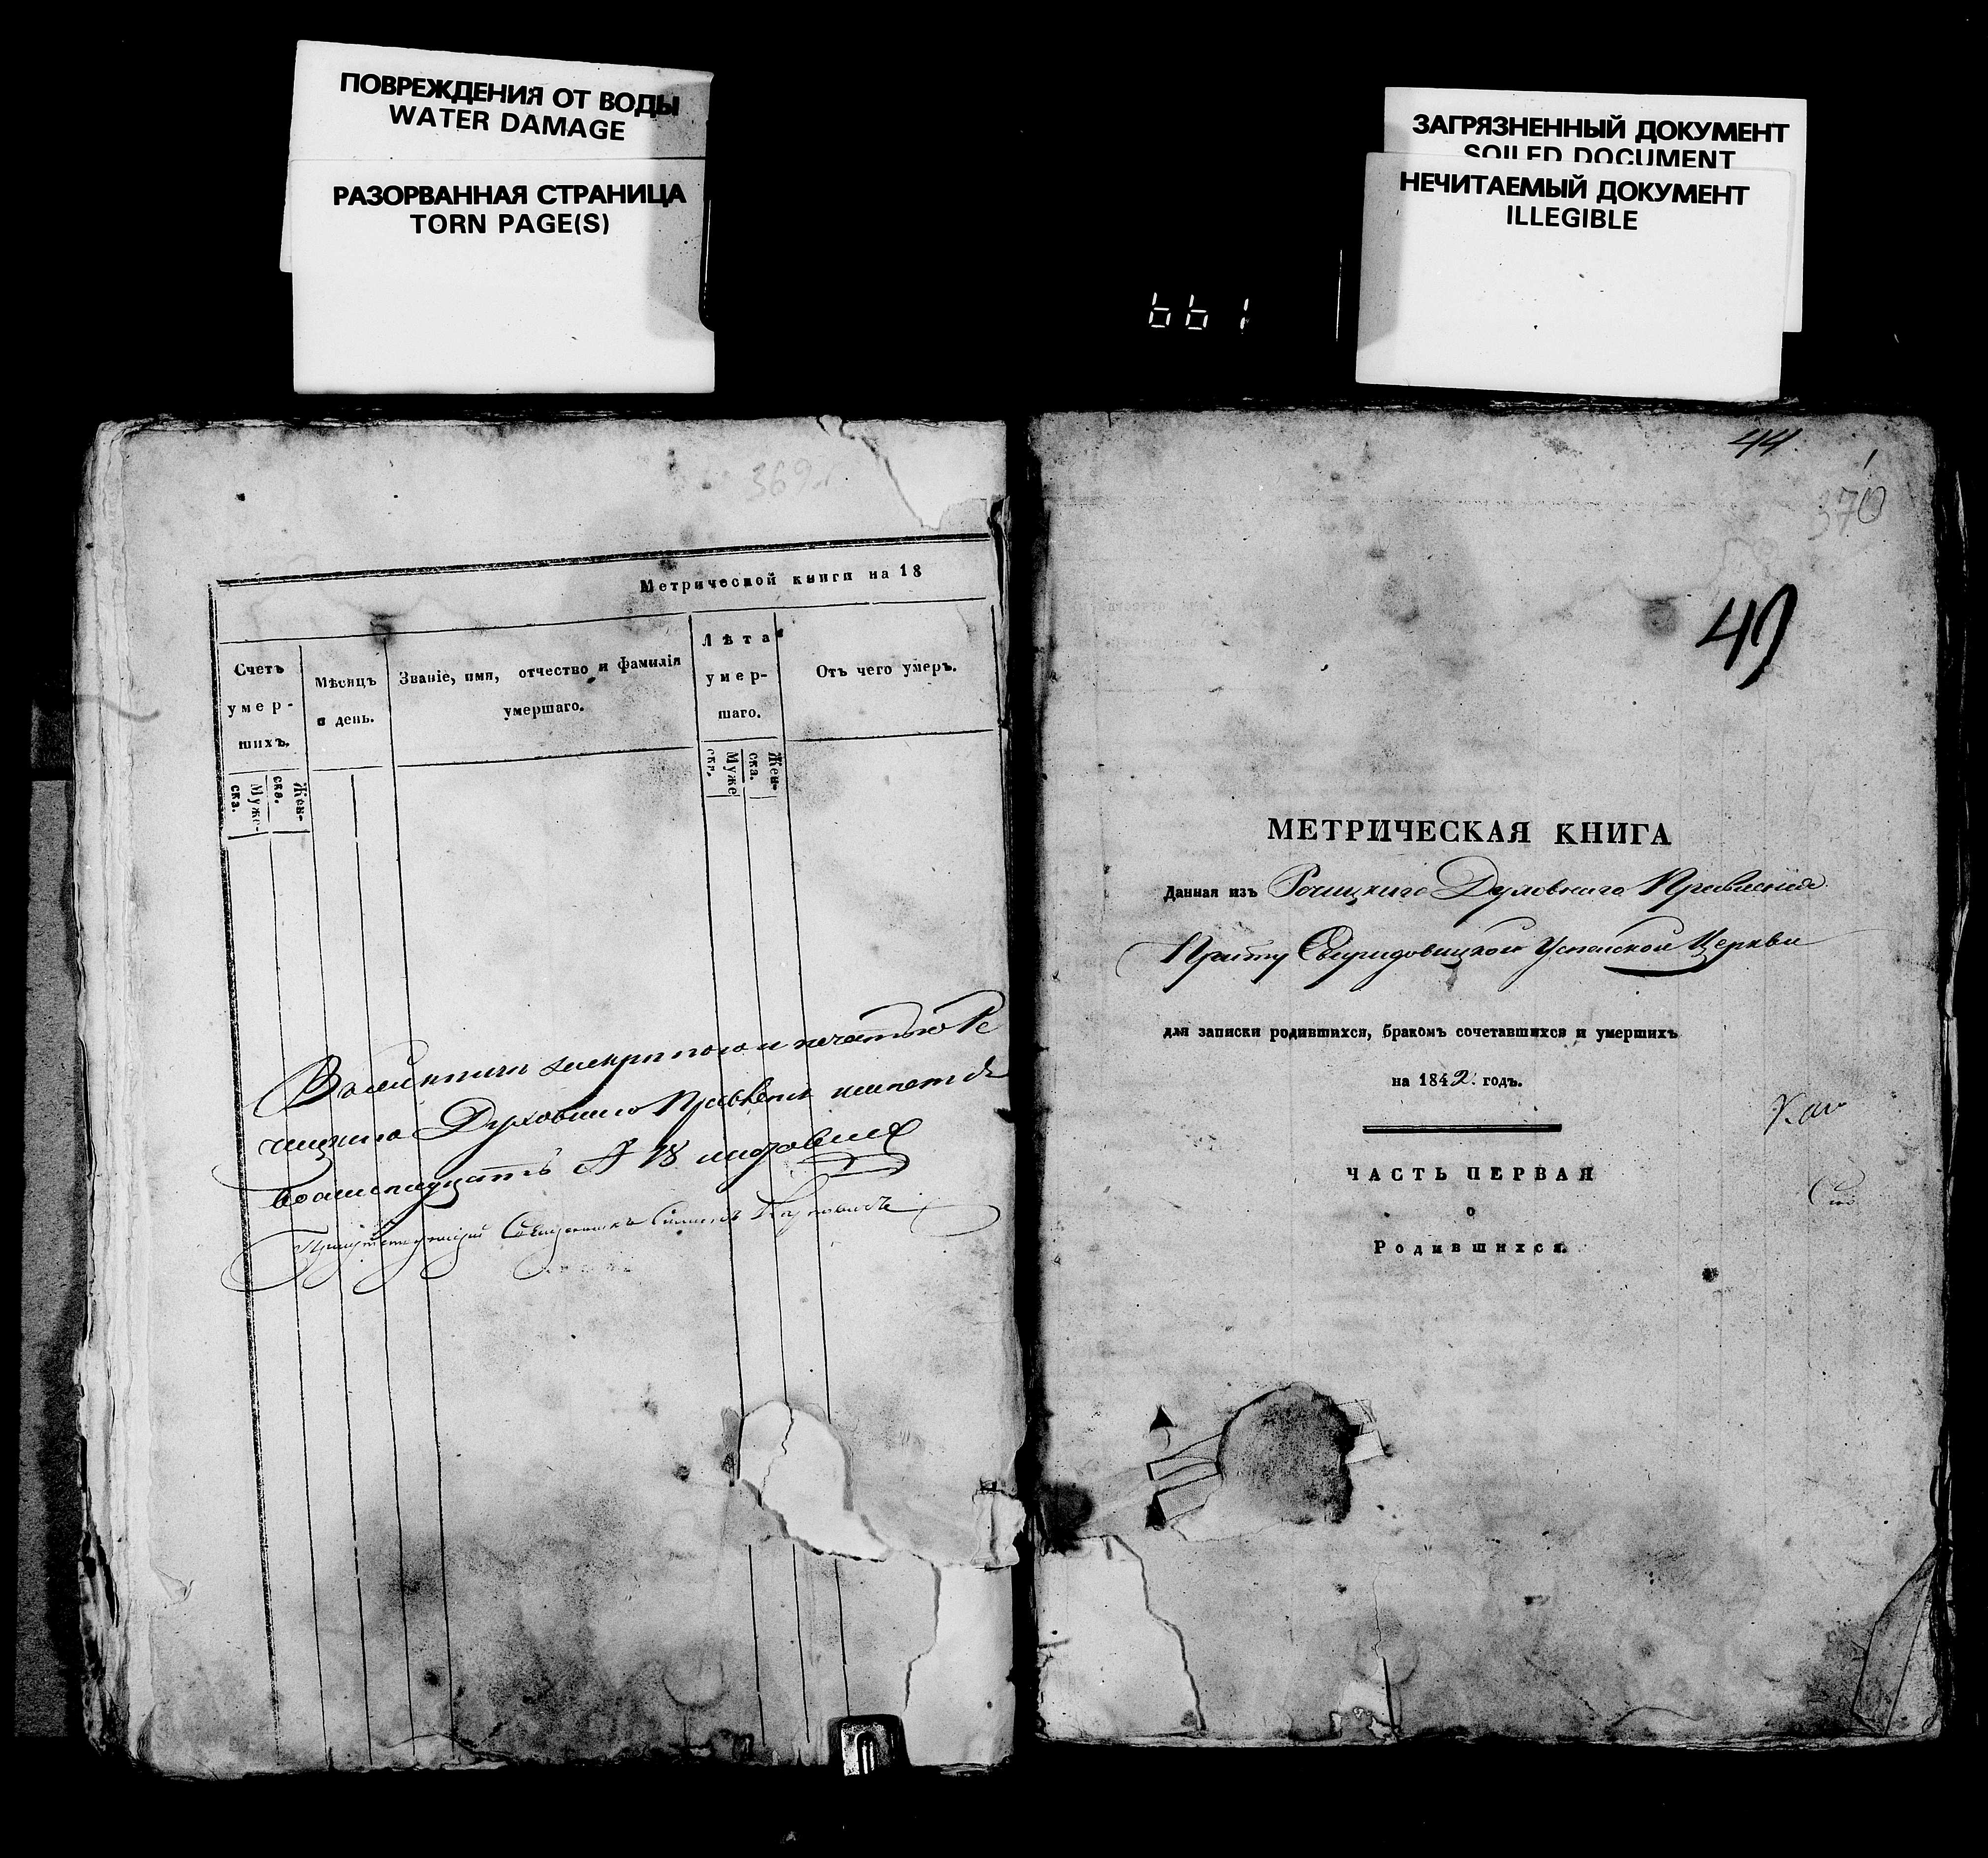 ПОВРЕЖДЕНИЯ ОТ ВОДЫ
WATER DAMAGE
РАЗОРВАННАЯ СТРАНИЦА
TORN PAGE(S)
ЗАГРЯЗНЕННЫЙ ДОКУМЕНТ
SOILED DOCUMENT
НЕЧИТАЕМЫЙ ДОКУМЕНТ
ILLEGIBLE
661
369
Метрической книги на 18
Счетъ умер-шихъ.
Мѣсяцъ и день.
Званіе, имя, отчество и фамилія умершаго.
Лѣта умер-шаго.
Отъ чего умеръ.
Муже-ска.
Жен-ска.
Муже-ска.
Жен-ска.
В сей книги за скрепою и печатью Ре
чицкаго Духовнаго Правленія листовъ
восемнадцать 18 листовъ
Присутствующий Священникъ
44.
370
49
МЕТРИЧЕСКАЯ КНИГА
Данная изъ Речицкаго Духовнаго Правленія
Причту Свиридовицкой Успенской Церкви
для записки родившихся, бракомъ сочетавшихся и умершихъ
на 1842. годъ.
ЧАСТЬ ПЕРВАЯ
о
Родившихся.